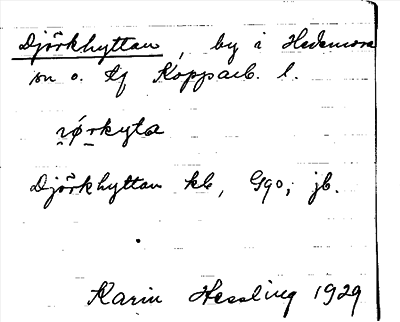 Djörkhyttan, by i Hedemora
sn o. tg Kopparb. l.
Djörkhyttan kb, G90; jb.
Karin Hessling 1929